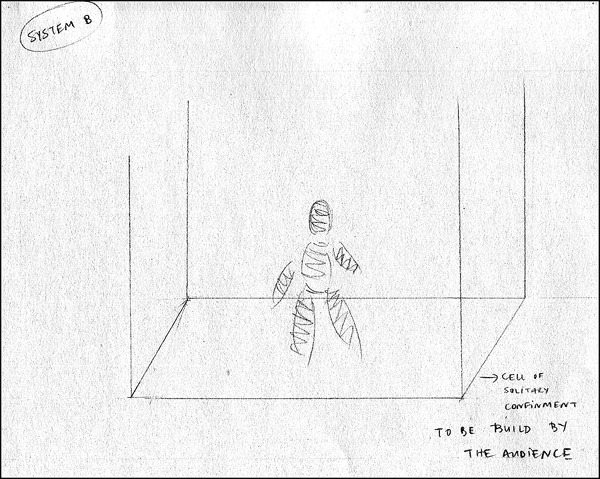 SYSTEM B
→ CELL OF
SOLITARY
CONFINMENT
TO BE BUILD BY
THE AUDIENCE